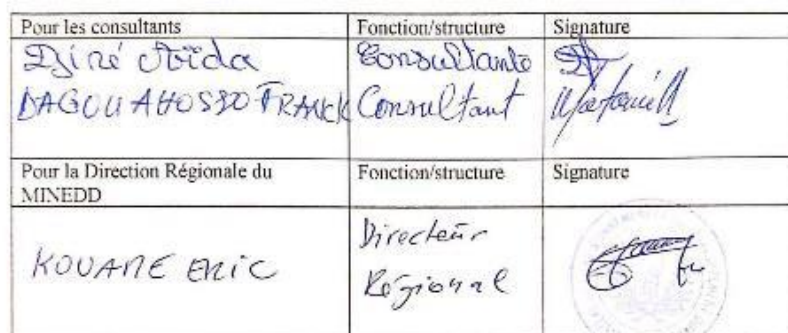 Pour les consultants Fonction/structure Signature
Djiré Aïda Consultante
DAGOU AHOSSO FRANCK Consultant
Pour la Direction Régionale du MINEDD Fonction/structure Signature
KOUAME ERIC Directeur Régional